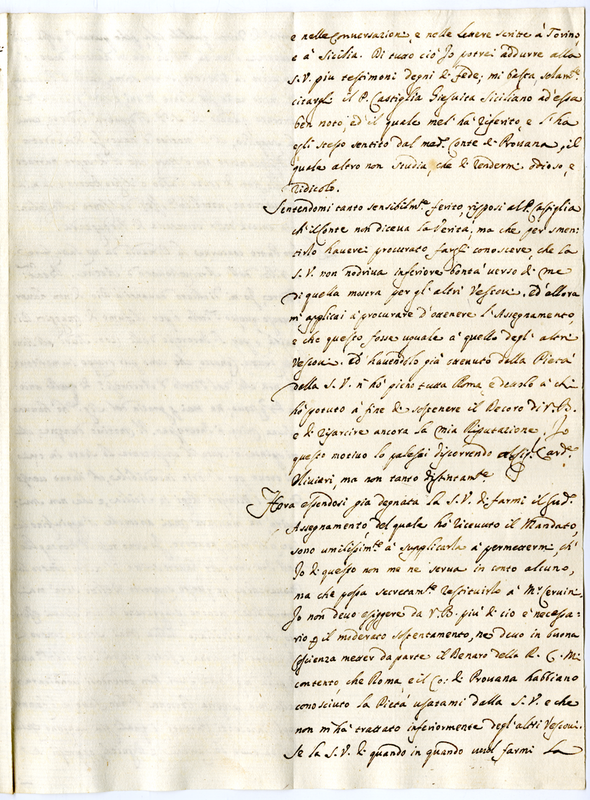 e nelle Conversazioni, e nelle Lettere scritte à Torino,
e à Sicilia. Di tutto ciò Jo potrei addurre alla
S.V. più testimoni degni di fede; mi basta, solam.te
citargli il P. Castiglia Giesuita Siciliano ad'essa
ben noto, ed'il quale mel'hà riferito, e l'ha
egli stesso sentito dal med.o Conte di Provana, il
quale altro non studia, che di rendermi odioso, e
ridicolo.
Sentendomi tanto sensibilm.te ferito, risposi al P. Castiglia
ch'il Conte non diceva la verità, ma che per smen-
tirlo haverei procurato fargli conoscere, che la
S.V. non nodriva inferiore bontà verso di me
di quella mostra per gl'altri Vescovi. Ed'allora
m'applicai à procurare d'ottenere l'Assegnamento,
e che questo fosse uguale à quello degl'altri
Vescovi. Ed'havendolo già ottenuto dalla Pietà
della S.V. n'hò pieno tutta Roma, e detolo à chi
hò potuto à fine di sostenere il Decoro di V.B.
e di risarcire ancora la mia Riputazione,
questo motivo lo palesai discorrendo al Sig.r Card.e
Oliviari, ma non tanto distintam.te
Hora essendosi già degnata la S.V. di farmi il sud.o
Assegnamento, del quale hò ricevuto il Mandato,
sono umilissim.te à supplicarla à permettermi, ch'
Jo di questo non me ne serva in conto alcuno,
ma che possa secretam.te restituirlo à M.r Cervini.
Jo non devo esiggere da V.B. più di ciò è necessa-
rio p il moderato sostentamento, ne devo in buona
Coscienza metter da parte il Denaro della R. C. Mi
contento, che Roma, e il Co: di Provana habbiano
conosciuto la Pietà usatami dalla S.V. e che
non m'hà trattato inferiormente degl'altri Vescovi.
Se la S.V. di quando in quando vuol farmi la